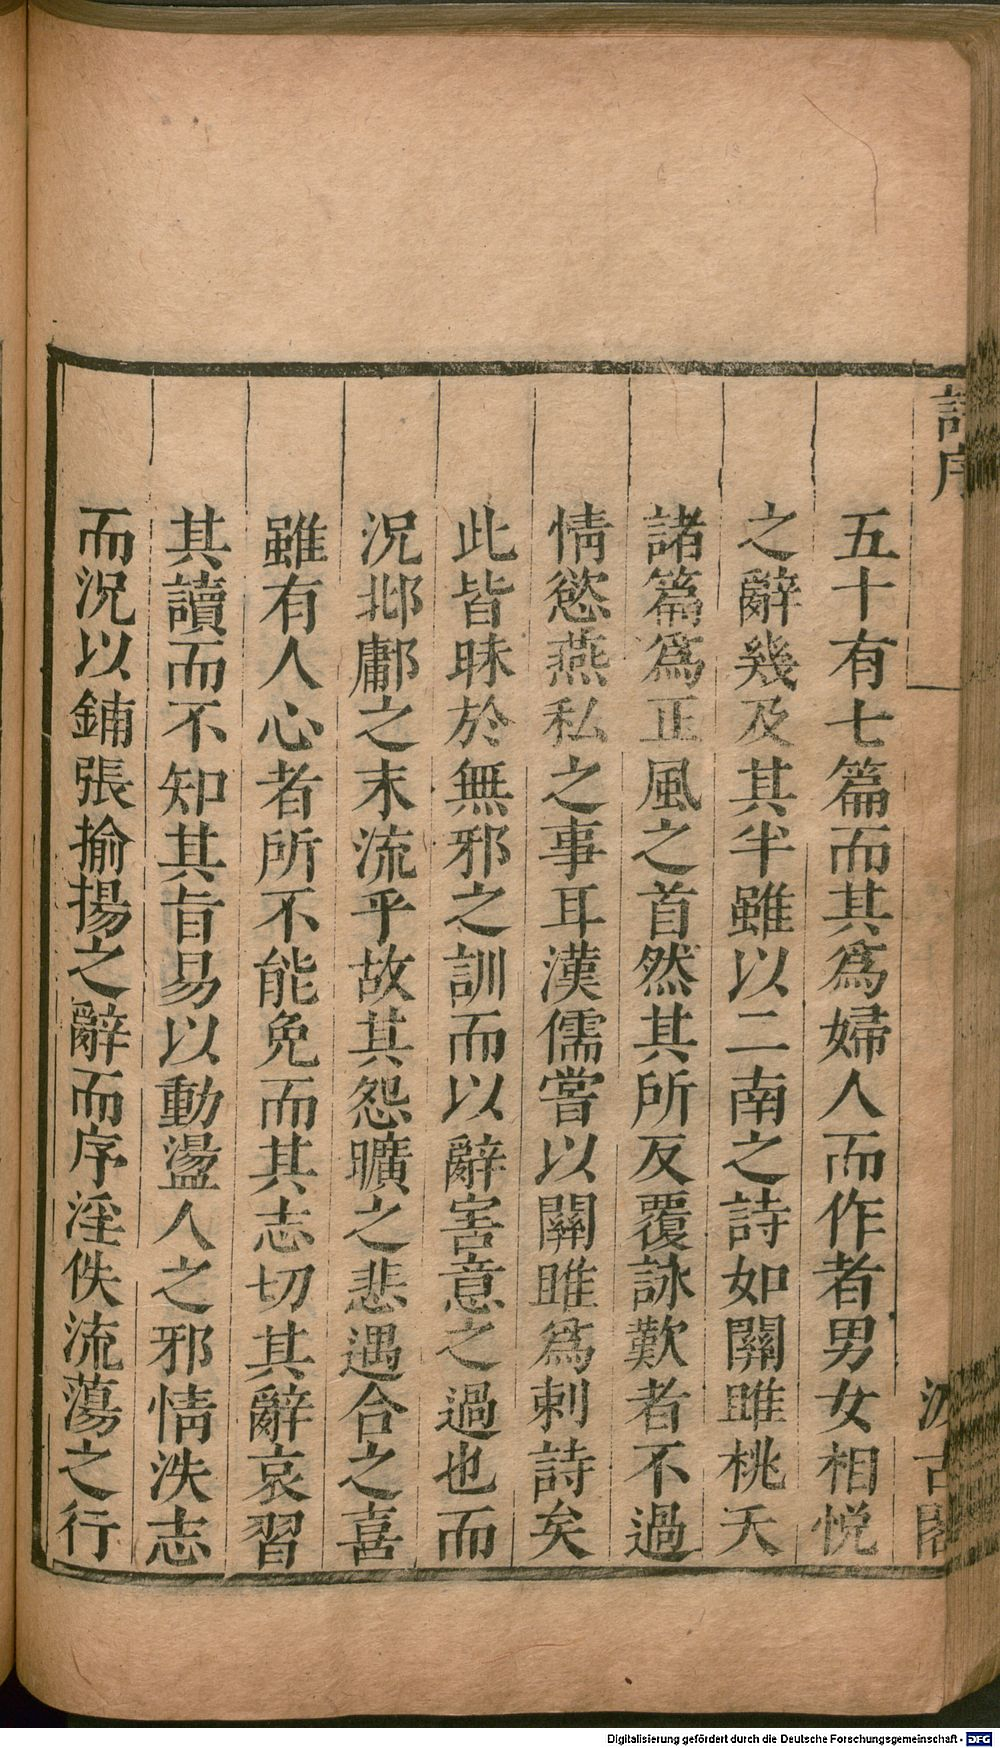 詩序
五十有七篇而其爲婦人而作者男女相悅
之辭幾及其半雖以二南之詩如關雎桃夭
諸篇爲正風之首然其所反覆詠歎者不過
情慾燕私之事耳漢儒嘗以關雎爲刺詩矣
此皆昧於無邪之訓而以辭害意之過也而
況邶鄘之末流乎故其怨曠之悲遇合之喜
雖有人心者所不能免而其志切其辭哀習
其讀而不知其旨易以動盪人之邪情泆志
而況以鋪張揄揚之辭而序淫佚流蕩之行
汲古閣
Digitalisierung gefördert durch die Deutsche Forschungsgemeinschaft - DFG